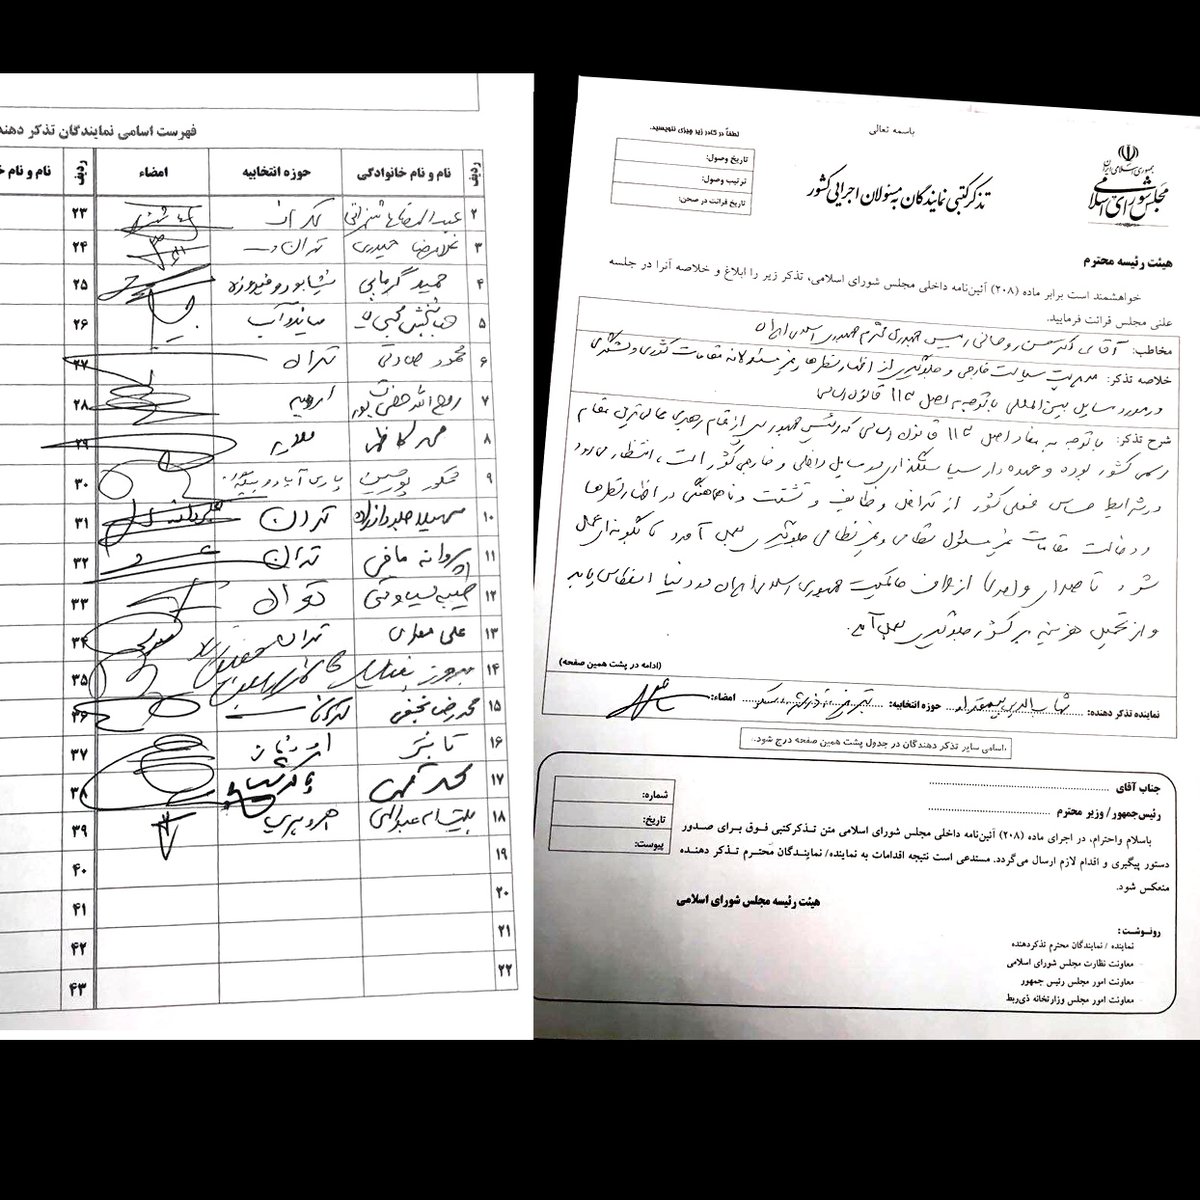 باسمه تعالی
جمهوری اسلامی ایران
مجلس شورای اسلامی
تذکر کتبی نمایندگان به مسئولان اجرایی کشور
لطفاً در کادر زیر چیزی ننویسید.
تاریخ وصول:
ترتیب وصول:
تاریخ قرائت در صحن:
هیئت رئیسه محترم
خواهشمند است برابر ماده (۲۰۸) آئین‌نامه داخلی مجلس شورای اسلامی، تذکر زیر را ابلاغ و خلاصه آنرا در جلسه
علنی مجلس قرائت فرمایید.
مخاطب: آقای دکتر حسن روحانی رییس جمهوری محترم جمهوری اسلامی ایران
خلاصه تذکر: مدیریت سیاست خارجی و جلوگیری از اظهارنظرها و غیرمسئولانه مقامات کشوری و لشگری
در مورد مسایل بین المللی با توجه به اصل ۱۱۳ قانون اساسی
شرح تذکر: با توجه به مفاد اصل ۱۱۳ قانون اساسی که رئیس جمهور پس از مقام رهبری عالی‌ترین مقام
رسمی کشور بوده و عهده دار سیاستگذاری در مسایل داخلی و خارجی کشور است، انتظار می‌رود
در شرایط حساس فعلی کشور از تداخل وظایف و تشتت و ناهماهنگی در اظهارنظرها
و دخالت مقامات غیرمسئول نظامی و غیرنظامی جلوگیری بعمل آورد تا بگونه‌ای عمل
شود تا صدای واحدی از جانب حاکمیت جمهوری اسلامی ایران در دنیا انعکاس یابد
و از تحمیل هزینه بر کشور جلوگیری بعمل آید.
(ادامه در پشت همین صفحه)
نماینده تذکر دهنده: شهاب الدین بیمقدار حوزه انتخابیه: تبریز، آذرشهر، اسکو امضاء:
اسامی سایر تذکر دهندگان در جدول پشت همین صفحه درج شود.
جناب آقای
رئیس‌جمهور/ وزیر محترم
باسلام واحترام، در اجرای ماده (۲۰۸) آئین‌نامه داخلی مجلس شورای اسلامی متن تذکر کتبی فوق برای صدور
دستور پیگیری و اقدام لازم ارسال می‌گردد. مستدعی است نتیجه اقدامات به نماینده/ نمایندگان محترم تذکر دهنده
منعکس شود.
شماره:
تاریخ:
پیوست:
هیئت رئیسه مجلس شورای اسلامی
رونوشت:
نماینده / نمایندگان محترم تذکردهنده
معاونت نظارت مجلس شورای اسلامی
معاونت امور مجلس رئیس جمهور
معاونت امور مجلس وزارتخانه ذی‌ربط
فهرست اسامی نمایندگان تذکر دهند
ردیف نام و نام خانوادگی حوزه انتخابیه امضاء ردیف نام و نام
۲ عبدالرضا هاشم‌زائی تهران ۲۳
۳ غلامرضا حیدری تهران ۲۴
۴ حمید گرمابی نیشابور و فیروزه ۲۵
۵ جهانبخش محبی نیا میاندوآب ۲۶
۶ محمود صادقی تهران ۲۷
۷ روح الله حضرت پور ارومیه ۲۸
۸ محمد کاظمی ملایر ۲۹
۹ شکور پورحسین پارس آباد و بیله سوار ۳۰
۱۰ سهیلا جلودارزاده تهران ۳۱
۱۱ پروانه مافی تهران ۳۲
۱۲ طیبه سیاوشی تهران ۳۳
۱۳ علی تهران ۳۴
۱۴ بهروز ۳۵
۱۵ محمدرضا نجفی تهران ۳۶
۱۶ ۳۷
۱۷ ۳۸
۱۸ عبدالهی اهر و هریس ۳۹
۱۹ ۴۰
۲۰ ۴۱
۲۱ ۴۲
۲۲ ۴۳